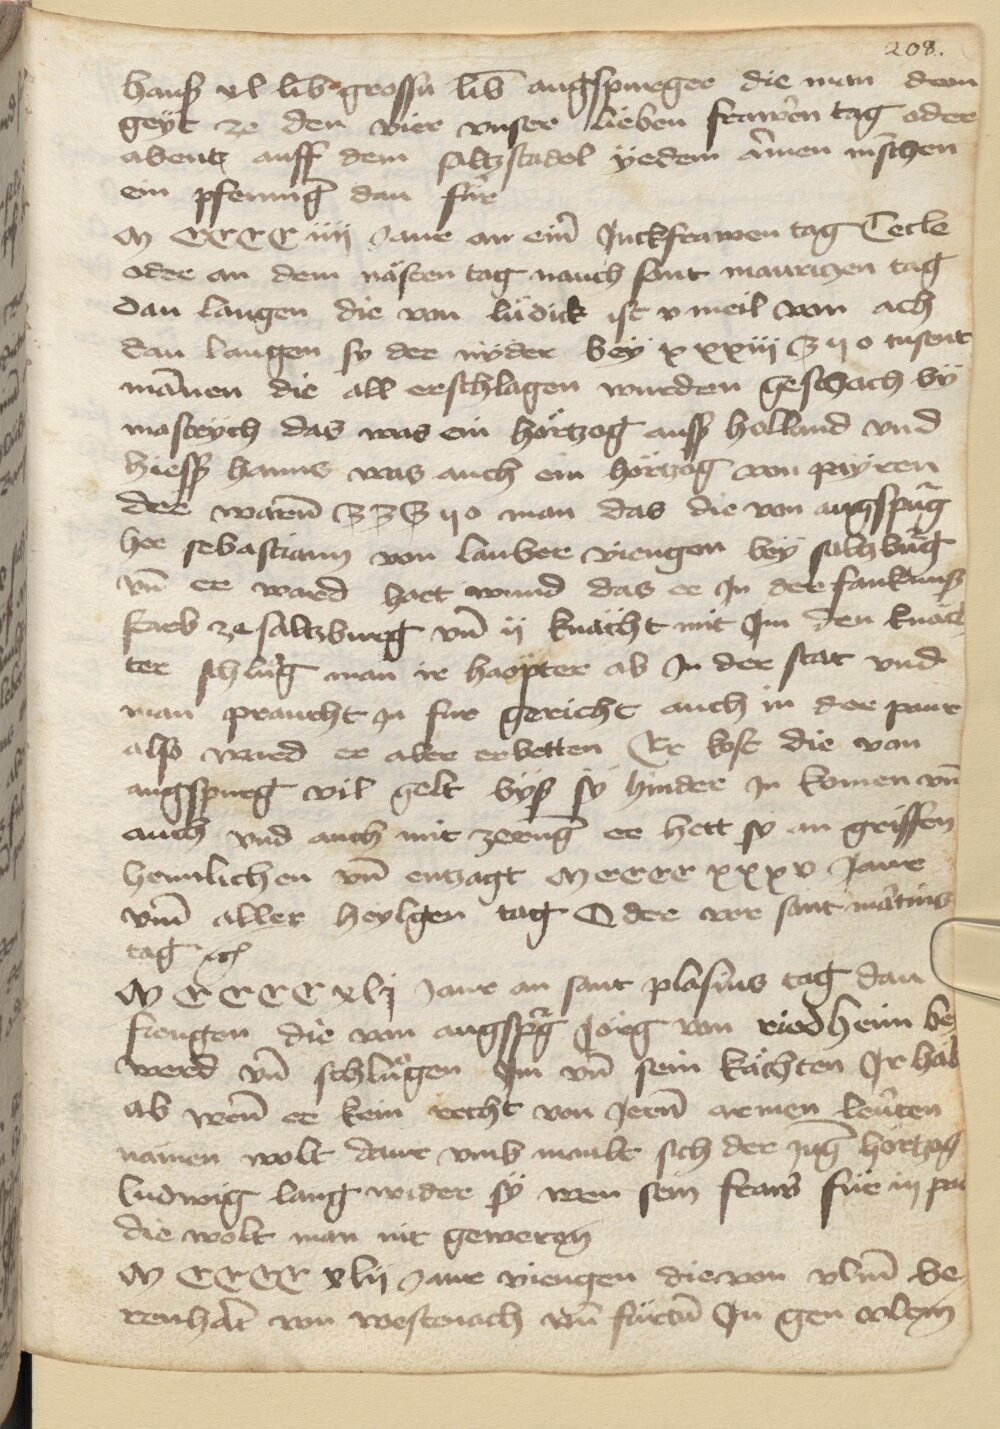 208.
hauß xl lib grossn lib augspurger die man dem
geyt ze den vier vnser lieben frawen tag oder
abentz auff dem saltzstadel yedem armen menschen
ein pfening dan für
M CCCC iiii Jaur an ein Junckfrawen tag Tecle
oder an dem nästen tag nauch sant mauriczen tag
Dau langen die von lüdick ist v meil von ach
dau langen sy der nyder bey xxxiii tusent
mannen die all erschlagen wurden geschach by
mastrych das was ein hörtzog auss holland vnd
hiess hanns was auch ein hörtzog von payren
der waren man das die von augspurg
her sebastiann von lauber viengen bey saltzburg
vn er ward hart wund das er In der fanknuß
starb ze saltzburg vn ii knächt mit Im den knäch
ter schlug man ir haöpter ab In der stat vnd
man praucht In fur gericht auch in der paur
also ward er aber erbetten Er kost die von
augspurg vil gelt byß sy hinder In komen vn
auch vnd auch mit zerung er hett sy an griffen
hemlichen vn entzagt M CCCC xxxv Jaur
vm aller heylgen tag Oder vor sant martins
tag
M CCCC xlj Jaur an sant plasius tag dau
fiengen die von augspurg Jörg von riedheim be
werd vn schlugen Im vn sein kächten Ir häl
ab wen er kein recht von Jren armen leuten
nämen wolt darumb maubt sich der Jung hörtzog
ludwig lang wider sy wen sein fraw für in pat
die wolt man nit geweren
M CCCC xlii Jaur viengen die von vlm be
renhart von westernach vn fürten In gen vlem